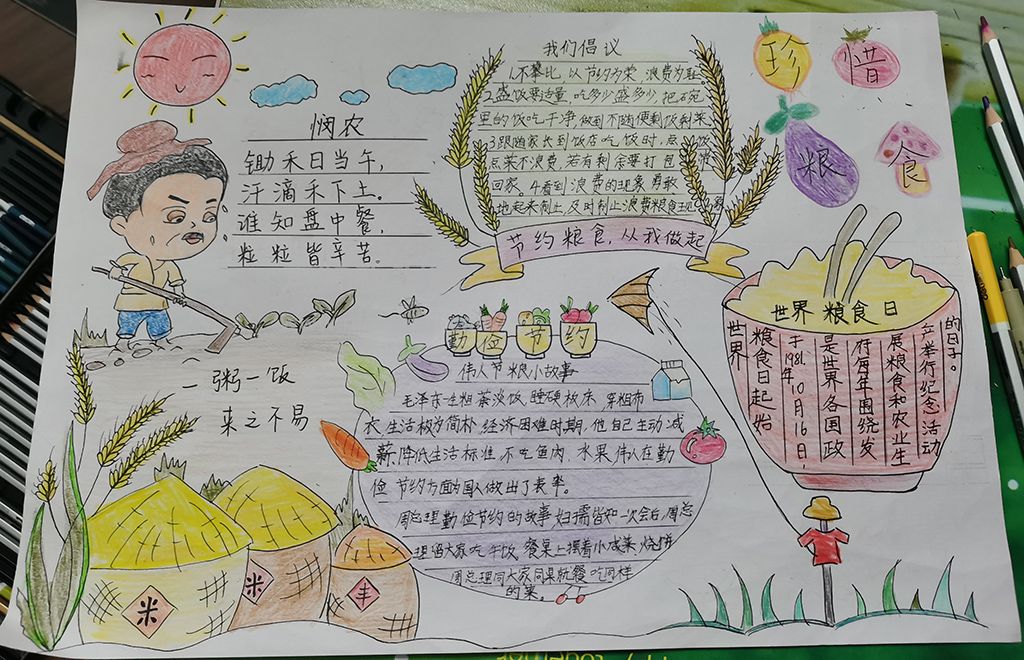 悯农
锄禾日当午，
汗滴禾下土。
谁知盘中餐，
粒粒皆辛苦。
我们倡议
1.不攀比，以节约为荣，浪费为耻
2.盛饭要适量，吃多少盛多少，把碗
里的饭吃干净，做到不随便剩饭剩菜。
3跟随家长到饭店吃饭时，点
点菜不浪费，若有剩余要打包
回家，4看到浪费的现象勇敢
地起来制止，及时制止浪费粮食现象
节约粮食，从我做起
珍
惜
粮
食
世界粮食日
世界
粮食日起始
于1981年10月16日，
是世界各国政
府每年围绕发
展粮食和农业生
产举行纪念活动
的日子。
一粥一饭
来之不易
勤俭节约
伟人节粮小故事
毛泽东一生粗茶淡饭，睡硬板床，穿粗布
衣，生活极为简朴，经济困难时期，他自己主动减
薪、降低生活标准，不吃鱼肉、水果，伟人在勤
俭节约方面为国人做出了表率。
周总理勤俭节约的故事妇孺皆知一次会后，周总
理留大家吃午饭，餐桌上摆着小咸菜，烧饼
周总理同大家同桌就餐，吃同样
的菜。
米
米
丰